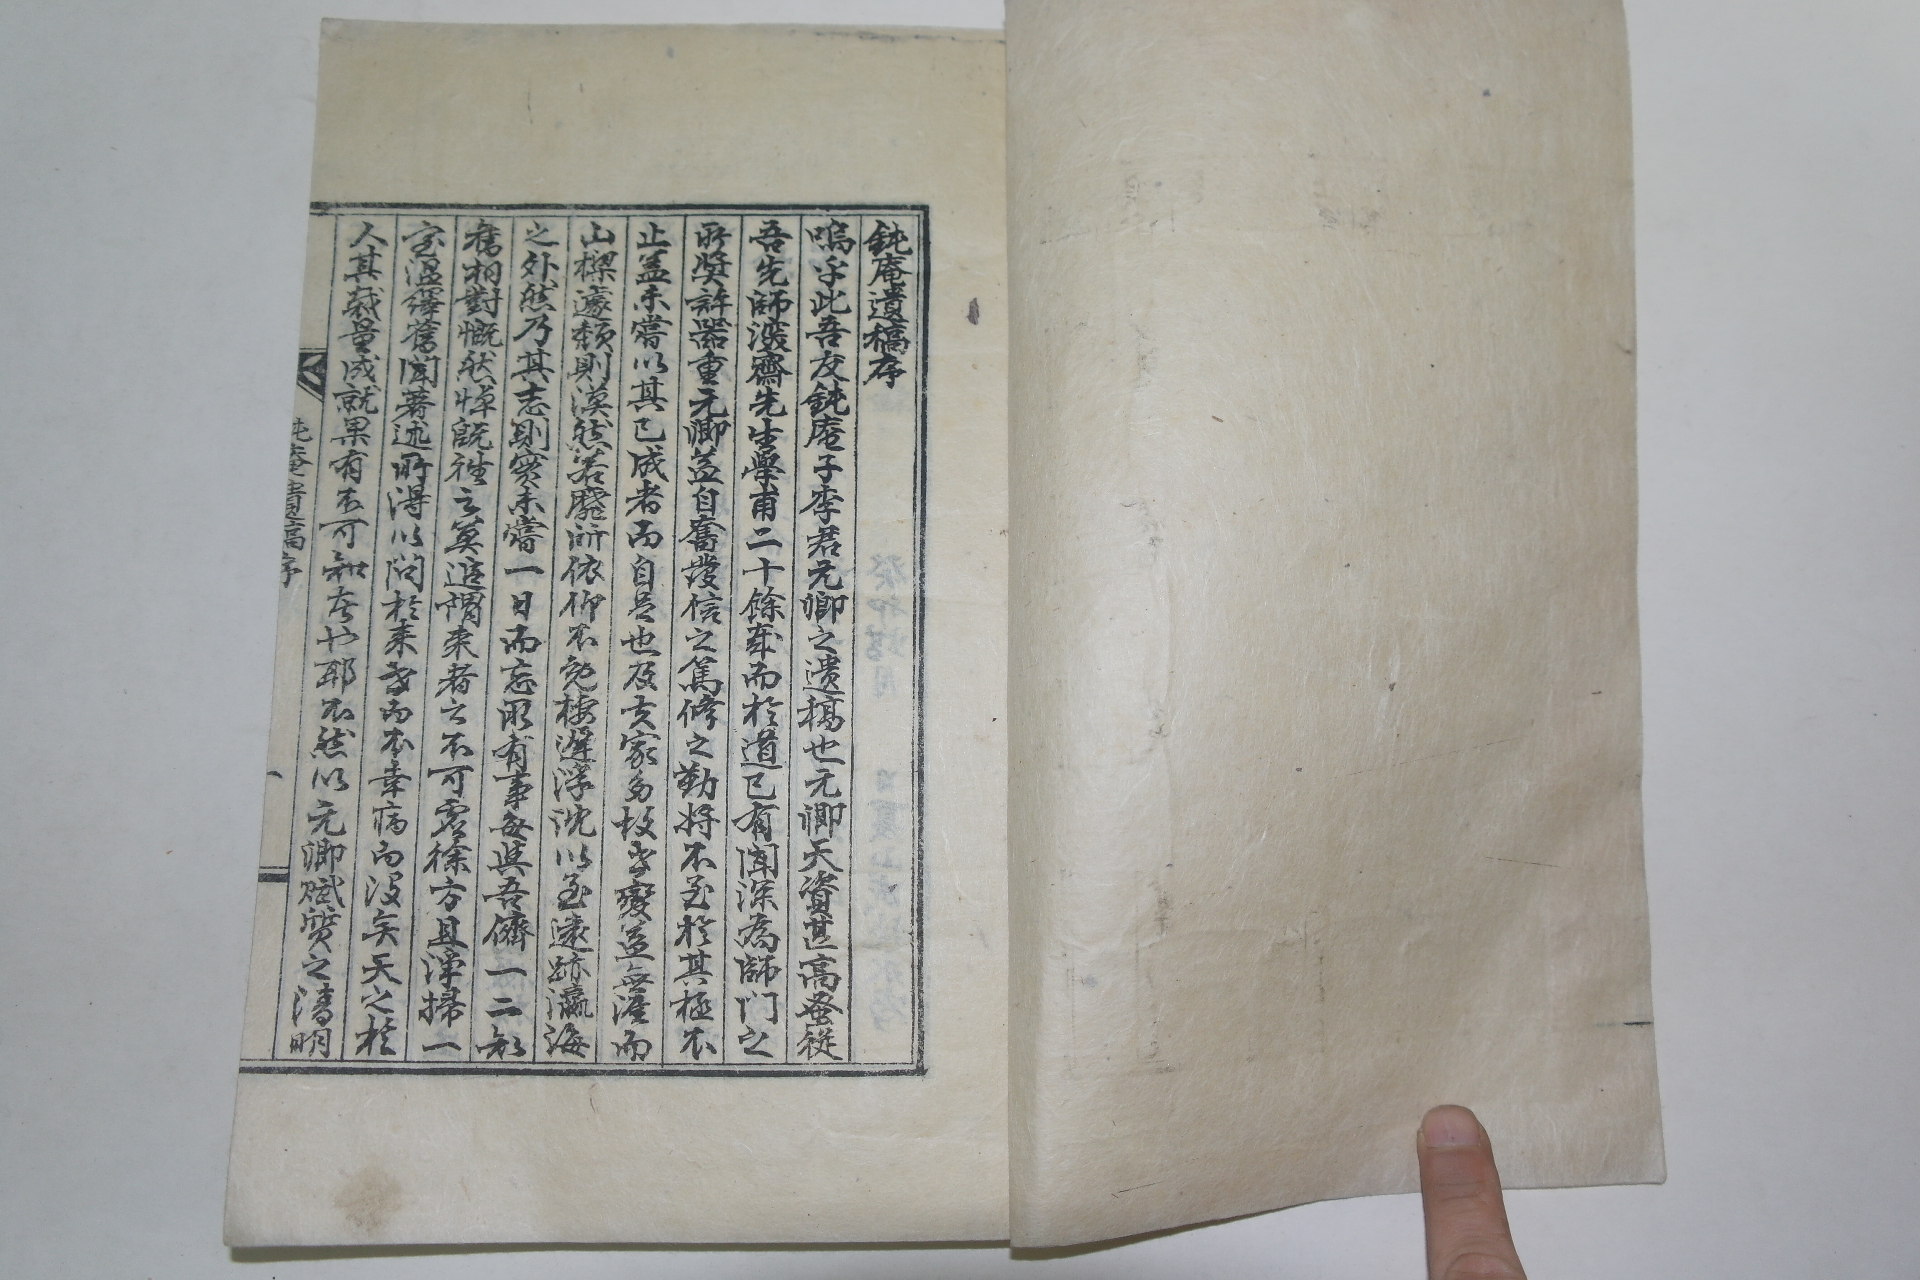 鈍庵遺稿序
嗚乎此吾友鈍庵子李君元卿之遺稿也元卿天資甚高蚤從
吾先師淡齋先生學甫二十餘歲而於道已有聞深爲師門之
所奬許器重元卿益自奮發信之篤修之勤將不至於其極不
止盖未嘗以其已成者而自足也及夫家多故世變益無涯而
山樑遽頹則漠然若靡所依仰不免棲遲浮沈以至遠跡瀛海
之外然乃其志則實未嘗一日而忘所有事每與吾儕一二知
舊相對慨然悼旣往之莫追謂來者之不可虛徐方且淨掃一
室溫繹舊聞著述所得以詔於來世而不幸病而沒矣天之於
人其裁量成就果有不可知者也耶不然以元卿賦質之淸明
鈍庵遺稿序
一